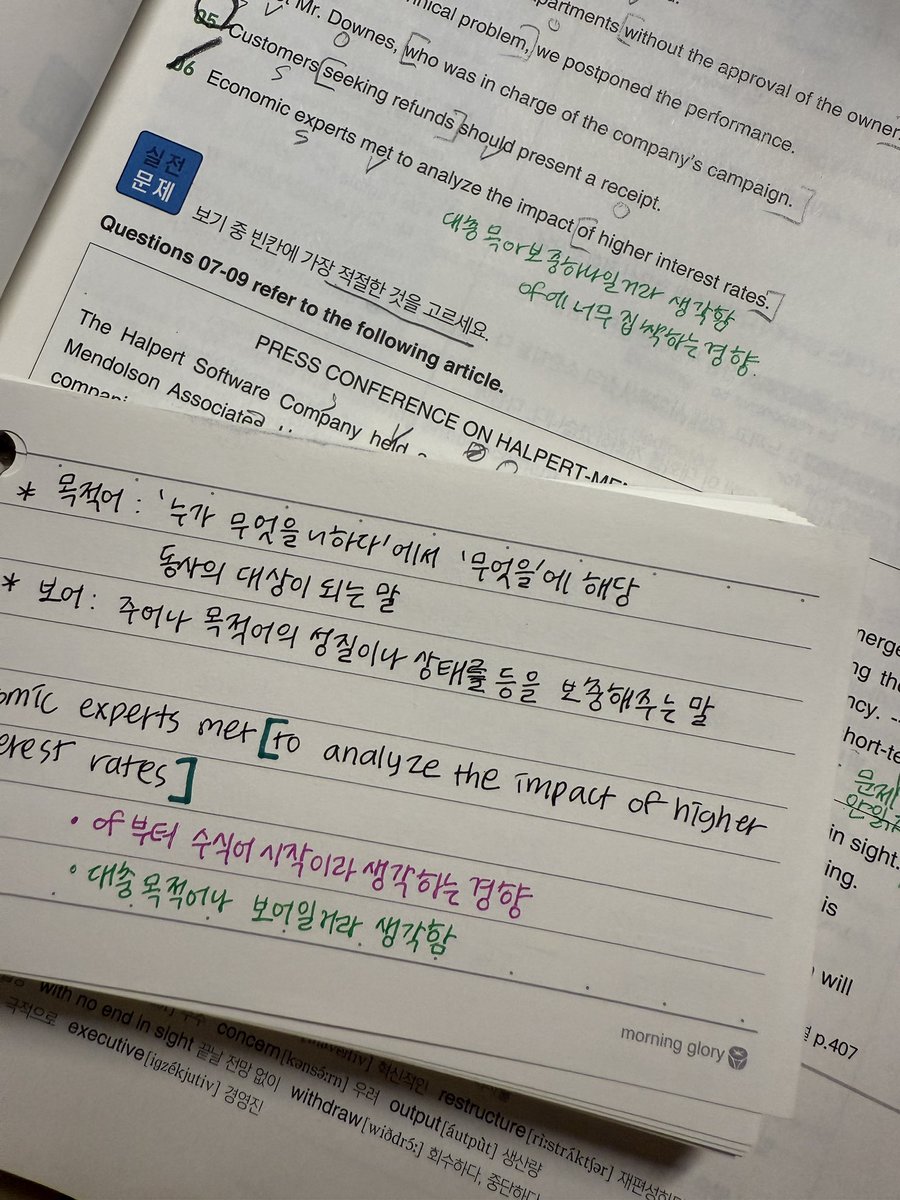 Mr. Downes, who was in charge of the company's campaign.
apartments without the approval of the owner.
problem, we postponed the performance.
05 Customers seeking refunds should present a receipt.
06 Economic experts met to analyze the impact of higher interest rates.
대충 목아보중하나일거라 생각함
of에 너무 집착하는 경향.
실전
문제
보기 중 빈칸에 가장 적절한 것을 고르세요.
Questions 07-09 refer to the following article.
PRESS CONFERENCE ON HALPERT-
The Halpert Software Company held
Mendolson Associated
* 목적어 : '누가 무엇을 ~하다'에서 '무엇을'에 해당
동사의 대상이 되는 말
* 보어 : 주어나 목적어의 성질이나 상태를 등을 보충해주는 말
omic experts met [to analyze the impact of higher
erest rates]
• of 부터 수식어 시작이라 생각하는 경향
• 대충 목적어나 보어일거라 생각함
문제
in sight.
ing.
is
will
p.407
morning glory
with no end in sight 끝날 전망 없이 concern[kənsə́ːrn] 우려 restructure[riːstrʌ́ktʃər]
executive[igzékjutiv] 경영진 withdraw[wiðdrɔ́ː] 회수하다, 중단하다 output[áutpùt] 생산량
혁신적인